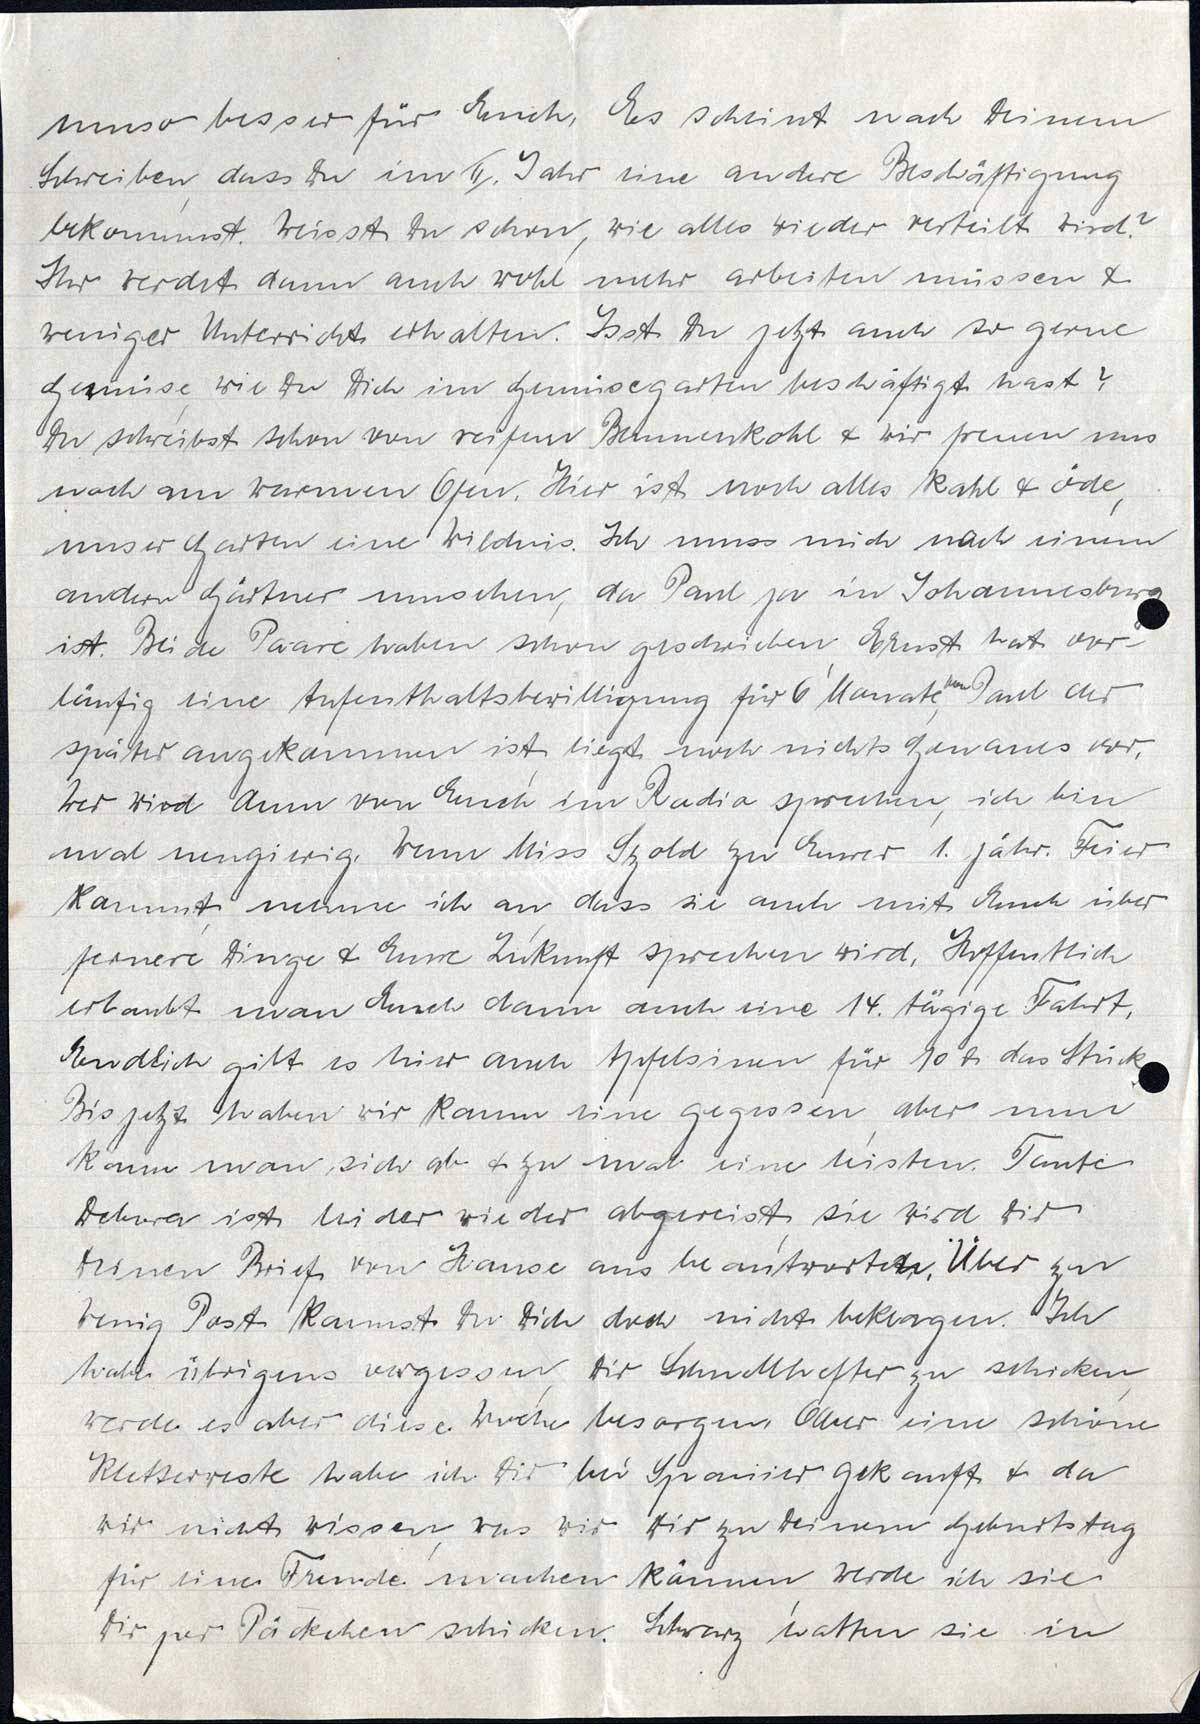 umso besser für Euch. Es scheint nach Deinem
Schreiben, dass Du im II. Jahr eine andere Beschäftigung
bekommst. Weisst Du schon, wie alles wieder verteilt wird?
Ihr werdet dann auch wohl mehr arbeiten müssen &
weniger Unterricht erhalten. Isst Du jetzt auch so gerne
Gemüse, wie Du Dich im Gemüsegarten beschäftigt hast?
Du schreibst schon von reifem Blumenkohl & wir freuen uns
noch am warmen Ofen. Hier ist noch alles kahl & öde,
unser Garten eine Wildnis. Ich muss mich nach einem
andern Gärtner umsehen, da Paul ja in Johannesburg
ist. Beide Paare haben schon geschrieben Ernst hat vor-
läufig eine Aufenthaltsbewilligung für 6 Monate, von Paul der
später angekommen ist, liegt noch nichts Genaues vor.
Wer wird denn von Euch im Radio sprechen, ich bin
mal neugierig. Wenn Miss Szold zu Eurer 1. jähr. Feier
kommt, nehme ich an, dass sie auch mit Euch über
fernere Dinge & Eure Zukunft sprechen wird. Hoffentlich
erlaubt man Euch dann auch eine 14. tägige Fahrt.
Endlich gibt es hier auch Apfelsinen für 10 d. das Stück
Bis jetzt haben wir kaum eine gegessen, aber nun
kann man sich ab & zu mal eine leisten. Tante
Debora ist leider wieder abgereist, sie wird Dir
Deinen Brief von Hause aus beantworten. Über zu
wenig Post kannst Du Dich doch nicht beklagen. Ich
habe übrigens vergessen, Dir Schnellhefter zu schicken,
werde es aber diese Woche besorgen. Aber eine schöne
Kletterweste habe ich Dir bei Spanier gekauft & da
wir nicht wissen, was wir Dir zu Deinem Geburtstag
für eine Freude machen können werde ich sie
Dir per Päckchen schicken. Schwarz hatten sie in